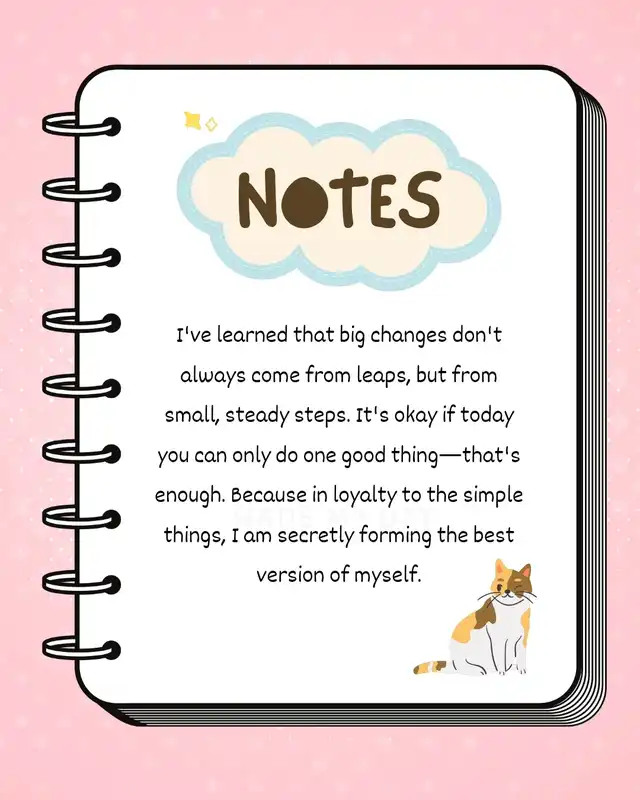 NOTES
I've learned that big changes don't
always come from leaps, but from
small, steady steps. It's okay if today
you can only do one good thing—that's
enough. Because in loyalty to the simple
things, I am secretly forming the best
version of myself.